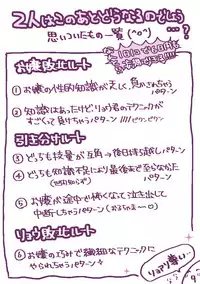 2人はこのあとどうなるのでしょう…?
思いついたもの一覧(^o^)
お嬢敗北ルート
① お嬢の性的知識が乏しく、負かされちゃう
パターン
② 知識はあったけどリョウ君のテクニックが
すごくて負けちゃうパターン
引き分けルート
③ どっちも技量が互角→後日持ち越しパターン
④ どっちも知識不足により最後まで至らなかった
パターン
⑤ お嬢が途中で怖くなって泣き出して
中断しちゃうパターン
リョウ敗北ルート
⑥ お嬢の巧妙で繊細なテクニックに
やられちゃうパターン